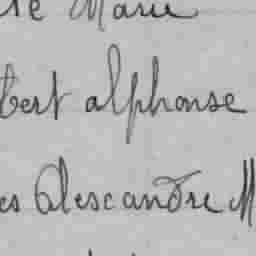 Marie
bert alphonse
es Alescandre M